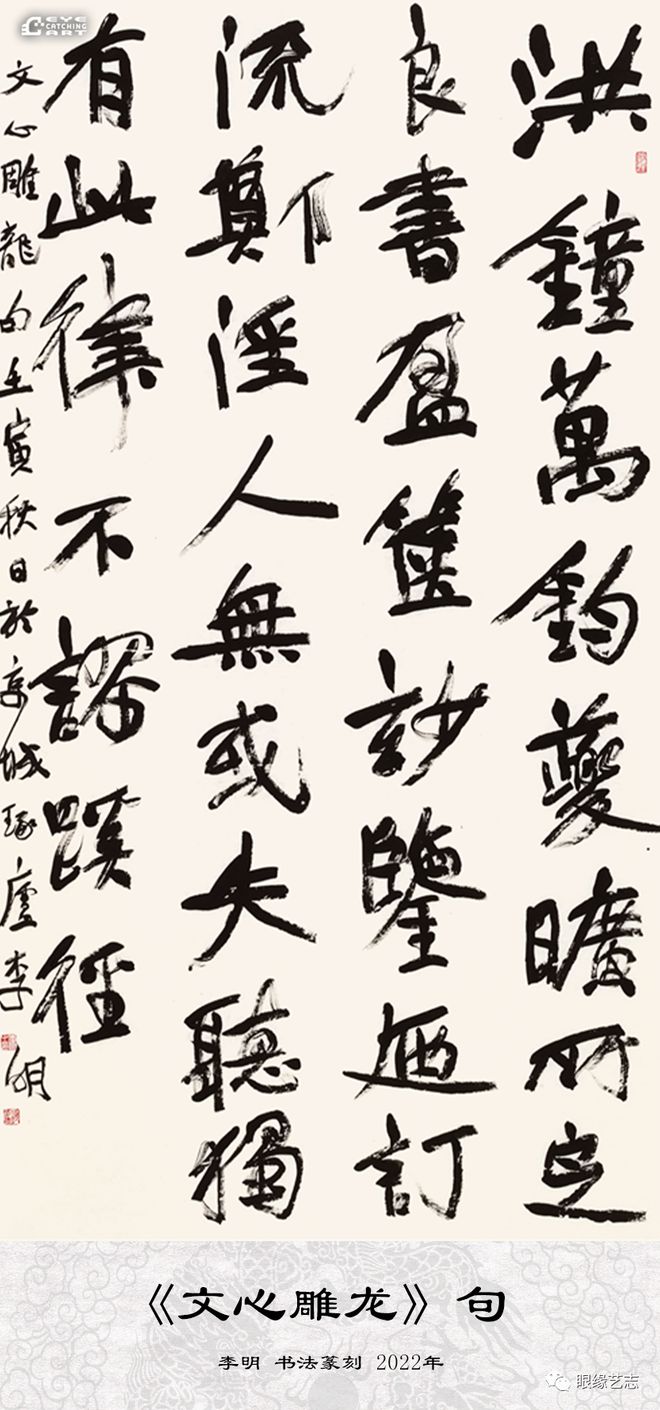 洪鐘萬鈞夔曠所定
良書盈篋妙鑒迺訂
流鄭淫人無或失聽獨
有此律不謬蹊徑
文心雕龍句壬寅秋日於京城琢廬李明
EYE CATCHING ART
《文心雕龙》句
李明 书法篆刻 2022年
眼缘艺志